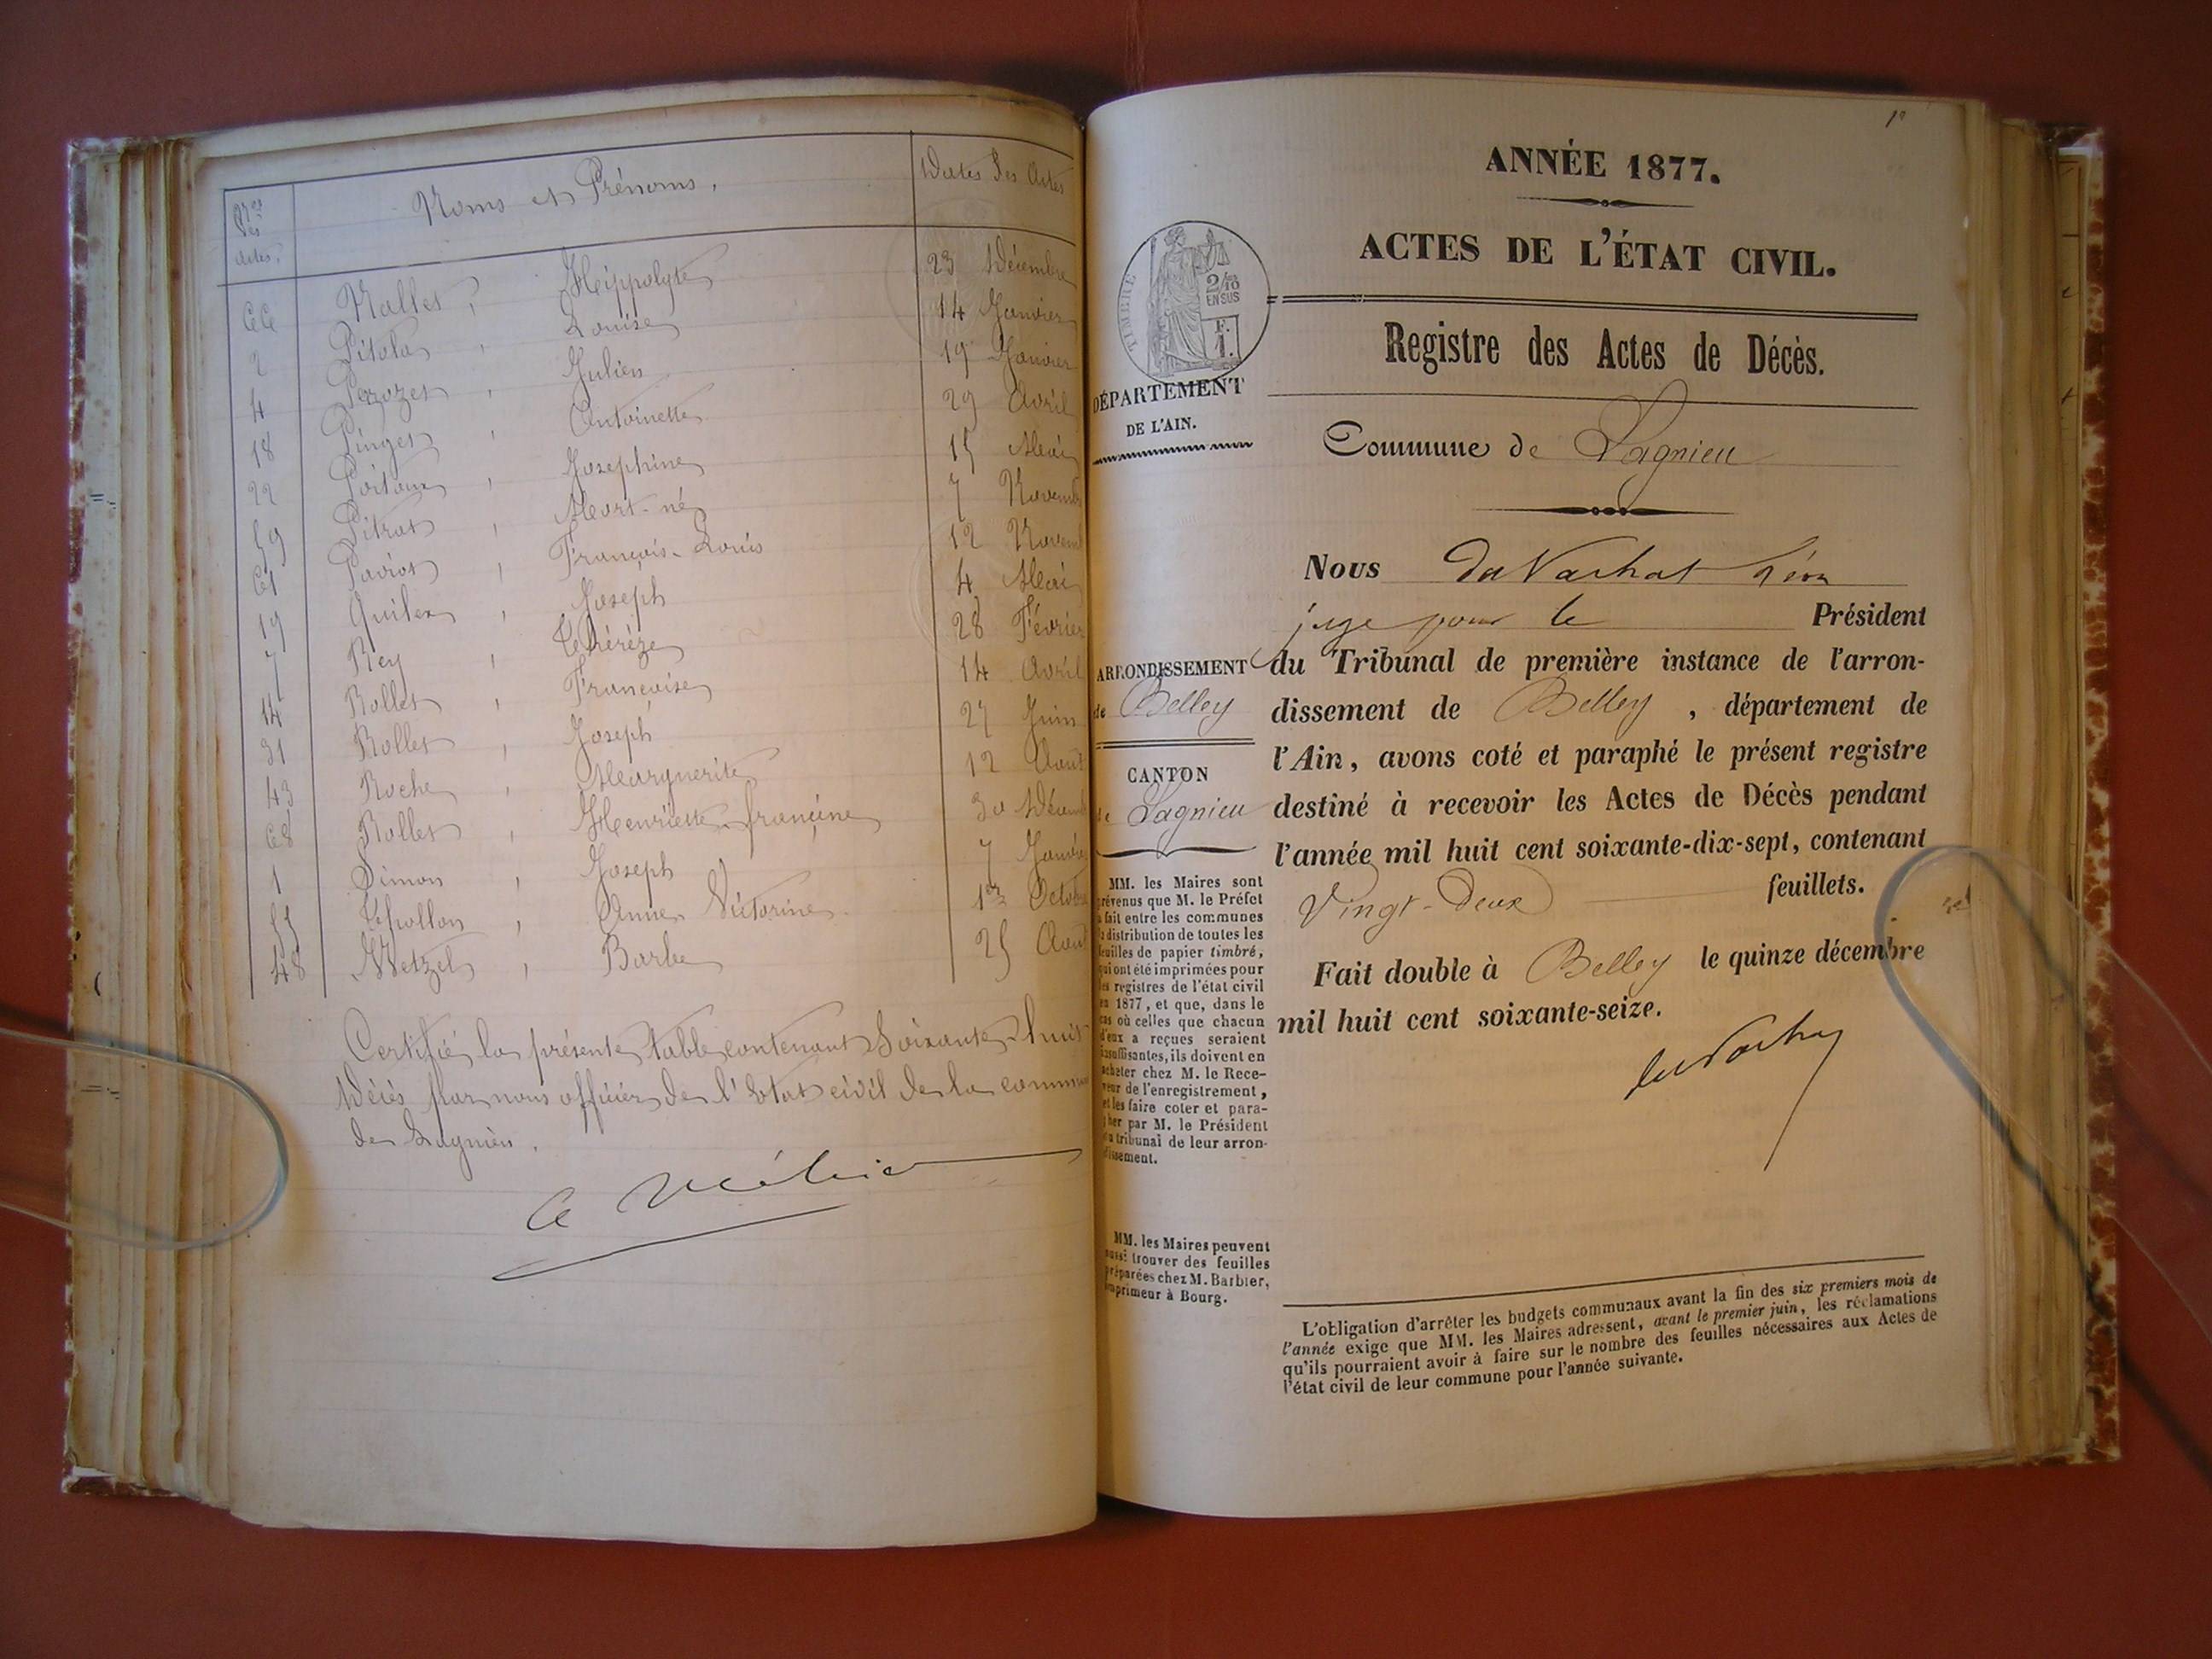 Nos des actes.
Noms et Prénoms.
Dates des Actes
66 Nallet, Hippolyte 23 Décembre
2 Pitola, Louise 14 Janvier
4 Perozet, Julien 19 Janvier
18 Pinget, Antoinette 29 Avril
22 Joséphine 15 Mai
59 Pitrat, Mort-né 7 Novemb
61 Paviot, François-Louis 12 Novem
19 Joseph 4 Mai
7 Rey, Thérèze 28 Février
14 Rollet, Françoise 14 Avril
31 Rollet, Joseph 27 Juin
43 Roche, Marguerite 12 Août
68 Rollet, Henriette-françine 30 Décemb
1 Simon, Joseph 7 Janvier
55 Thollon, Anne Victorine 1er Octobre
48 Wetzel, Barbe 25 Août
Certifié la présente table contenant Soixante-huit
Décès par nous officier de l'Etat civil de la commune
de Lagnieu.
1er
ANNÉE 1877.
ACTES DE L'ÉTAT CIVIL.
TIMBRE
2/10
EN SUS
F.
1.
Registre des Actes de Décès.
DÉPARTEMENT
DE L'AIN.
Commune de Lagnieu
Nous du Vachat Léon
juge pour le Président
du Tribunal de première instance de l'arron-
dissement de Belley, département de
l'Ain, avons coté et paraphé le présent registre
destiné à recevoir les Actes de Décès pendant
l'année mil huit cent soixante-dix-sept, contenant
Vingt-Deux feuillets.
Fait double à Belley le quinze décembre
mil huit cent soixante-seize.
du Vachat
ARRONDISSEMENT
de Belley
CANTON
de Lagnieu
MM. les Maires sont
prévenus que M. le Préfet
a fait entre les communes
la distribution de toutes les
feuilles de papier timbré,
qui ont été imprimées pour
les registres de l'état civil
en 1877, et que, dans le
cas où celles que chacun
d'eux a reçues seraient
insuffisantes, ils doivent en
acheter chez M. le Rece-
veur de l'enregistrement,
et les faire coter et para-
pher par M. le Président
du tribunal de leur arron-
dissement.
MM. les Maires peuvent
aussi trouver des feuilles
préparées chez M. Barbier,
imprimeur à Bourg.
L'obligation d'arrêter les budgets communaux avant la fin des six premiers mois de
l'année exige que MM. les Maires adressent, avant le premier juin, les réclamations
qu'ils pourraient avoir à faire sur le nombre des feuilles nécessaires aux Actes de
l'état civil de leur commune pour l'année suivante.